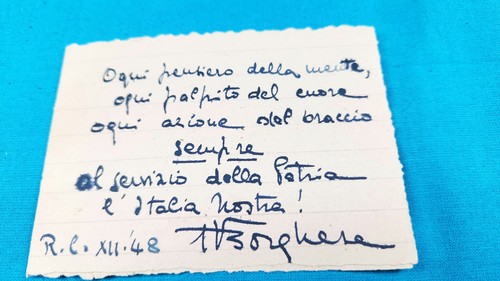 Ogni pensiero della mente,
ogni palpito del cuore
ogni azione del braccio
sempre
al servizio della Patria
l'Italia Nostra!
R.C. XII.'48 VBorghese